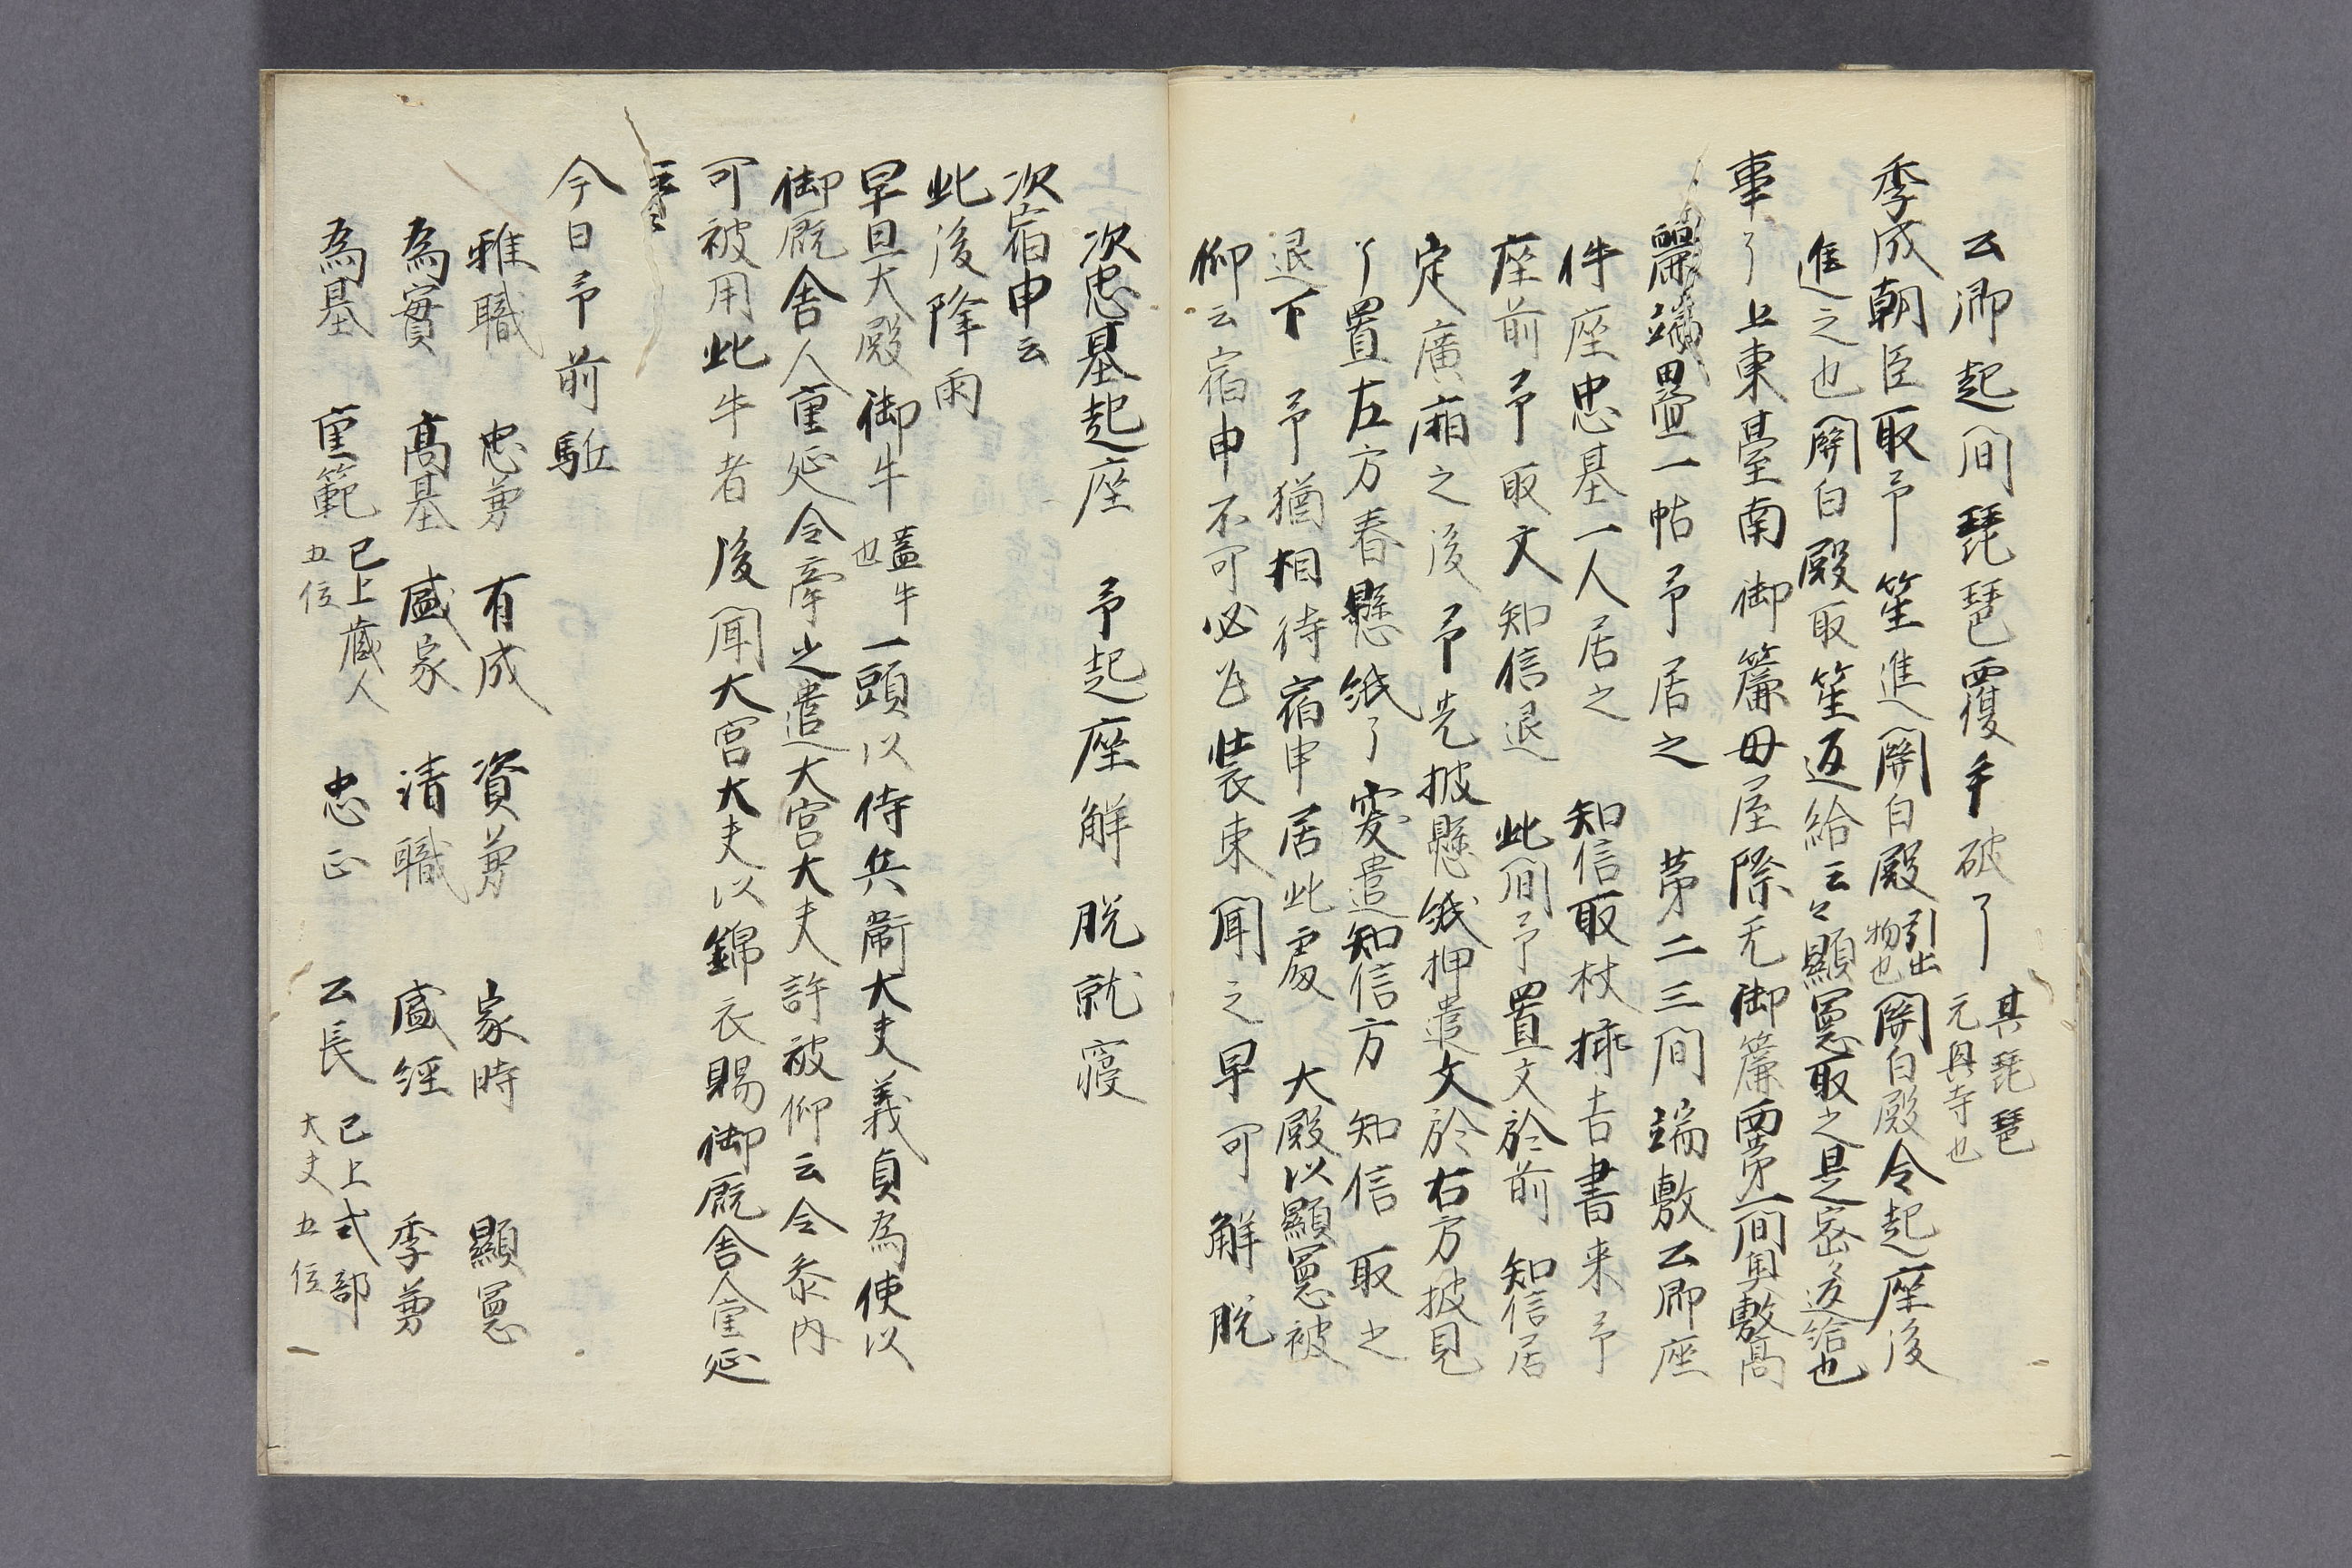 公卿起間琵琶覆手破了其琵琶元興寺也
季成朝臣取予笙進関白殿引出物也関白殿令起座後
進之也関白殿取笙返給云々顕憲取之是密々返給也
事了上東臺南御簾母屋際无御簾西第一間奥敷高
麗端畳一帖予居之 第二三間端敷公卿座
件座忠基一人居之 知信取杖挿吉書来予
座前予取文知信退 此間予置文於前 知信居
定廣廂之後予先披懸紙押遣文於右方披見
了置左方巻懸紙了 遣知信方 知信取之
退下 予猶相待宿申居此處 大殿以顕憲被
仰云宿申不可必 装束聞之早可解脱
次忠基起座 予起座解脱就寝
次宿申云
此後降雨
早旦大殿御牛盖牛也一頭以侍兵衛大夫義貞為使以
御厩舎人重延令牽之遣大宮大夫許被仰云令参内
可被用此牛者後聞大宮大夫以錦衣賜御厩舎人重延
今日予前駈
雅職 忠兼 有成 資兼 家時 顕憲
為實 高基 盛家 清職 盛経 季兼
為基 重範已上蔵人五位 忠正 公長已上式部大夫五位